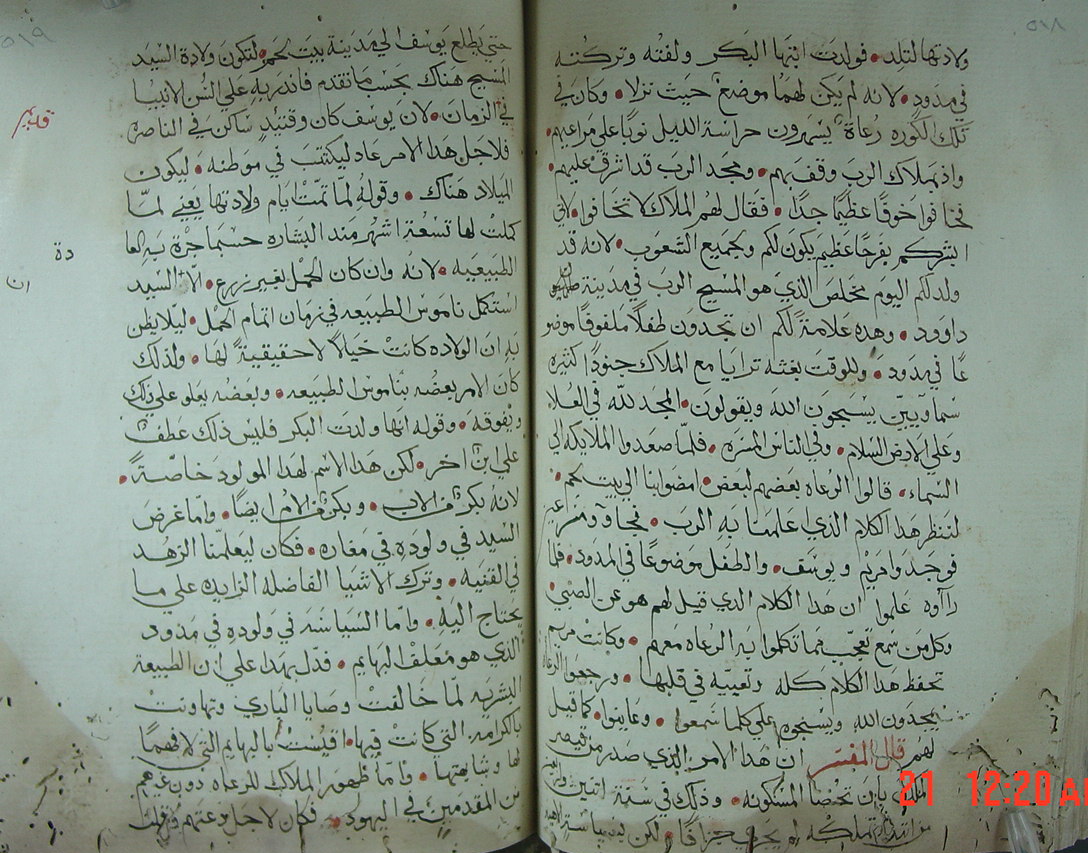 ٥١٨
ولادتها لتلد. فولدت ابنها البكر ولفته وتركته
في مدود. لانه لم يكن لهما موضع حيث نزلا. وكان في
تلك الكوره رعاة يسهرون حراسة الليل نوبًا علي مراعيهم.
واذ بملاك الرب وقف بهم. ومجد الرب قد اشرق عليهم.
فخافوا خوفًا عظيمًا جدًا. فقال لهم الملاك لا تخافوا. لاني
ابشركم بفرحًا عظيم يكون لكم ولجميع الشعوب. لانه قد
ولد لكم اليوم مخلص الذي هو المسيح الرب في مدينة
داوود. وهذه علامة لكم ان تجدون طفلًا ملفوفًا موضو
عًا في مدود. وللوقت بغثه ترايا مع الملاك جنودًا كثيره
سماويين يسبحون الله ويقولون. المجد لله في العلا
وعلي الارض السلام. وفي الناس المسره. فلما صعدوا الملايكه الي
السماء. قالوا الرعاه بعضهم لبعض. امضوا بنا الي بيت لحم.
لننظر هذا الكلام الذي اعلمنا به الرب. فجاوو مسرعين
فوجدوا مريم ويوسف. والطفل موضوعًا في المدود. فلما
رااوه علموا ان هذا الكلام الذي قيل لهم هو عن الصبي.
وكل من سمع تعجب مما تكلموا به الرعاه معهم. وكانت مريم
تحفظ هذا الكلام كله وتعييه في قلبها. ورجعوا الرعاه
يمجدون الله ويسبحوه علي كلما سمعوا. وعاينوا. كما قيل
لهم قال المفسر ان هذا الامر الذي صدر من قيصر
الملك بان تحصا المسكونه. وذلك في سنة اتنين واربعين
من ابتدا تملكه لم يجري جزافًا. لكن لسياسة
٥١٩
حتي يطلع يوسف الي مدينة بيت لحم. لتكون ولادة السيد
المسيح هناك بحسب ما تقدم فانذر به علي السن الانبيا
في الزمان. لان يوسف كان وقتيذٍ ساكن في الناصره
فلاجل هذا الامر عاد ليكتتب في موطنه. ليكون
الميلاد هناك. وقوله لما تمت ايام ولادتها يعني لما
كملت لها تسعة اشهر منذ البشاره حسبما جرة به العا
دة
الطبيعيه. لانه وان كان الحمل بغير زرع. الا ان السيد
استكمل ناموس الطبيعه في زمان اتمام الحمل. ليلا يظن
به ان الولاده كانت خيالًا لا حقيقية لها. ولذلك
كان الامر بعضه بناموس الطبيعه. وبعضه يعلو علي ذلك
ويفوقه. وقوله انها ولدت البكر فليس ذلك عطف
علي ابن اخر. لكن هذا الاسم لهذا المولود خاصة.
لانه بكر من الاب. وبكر من الام ايضًا. واما غرض
السيد في ولوده في مغاره. فكان ليعلمنا الزهد
في القنيه. وترك الاشيا الفاضله الزايده علي ما
يحتاج اليه. واما السياسه في ولوده في مدود
الذي هو معلف البهايم. فدل بهذا علي ان الطبيعة
البشريه لما خالفت وصايا الباري وتهاونت
بالكرامه التي كانت فيها. اقيست بالبهايم التي لا فهمًا
لها وشابهتها. واما ظهور الملاك للرعاه دون غيرهم
من المقدمين في اليهود. فكان لاجل دعتهم وقلت
21 12:20 A